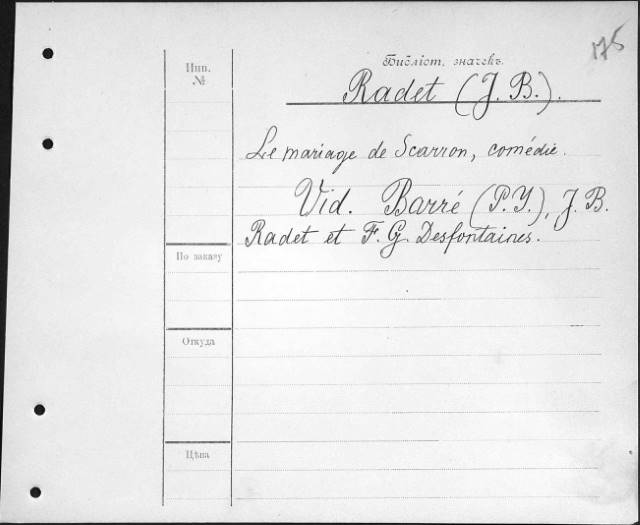 175
Инв.
№
Библіот. значекъ
Radet (J. B.).
Le mariage de Scarron, comédie.
Vid. Barré (P. Y.), J. B.
Radet et F. G Desfontaines.
По заказу
Откуда
Цѣна